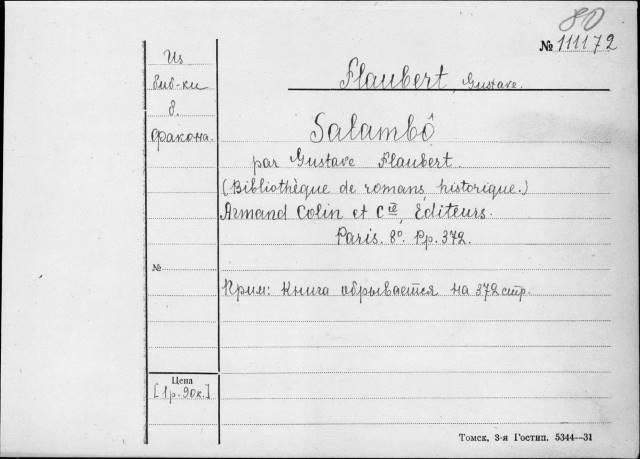 80
№ 111172
Из
биб-ки
б.
Фракона.
Flaubert, Gustave.
Salambô
par Gustave Flaubert.
(Bibliothèque de romans historique.)
Armand Colin et Cie, Éditeurs.
Paris. 8°. Pp. 372.
№
Прим: Книга обрывается на 372 стр.
Цена
[1 р. 90 к.]
Томск, 3-я Гостип. 5344—31